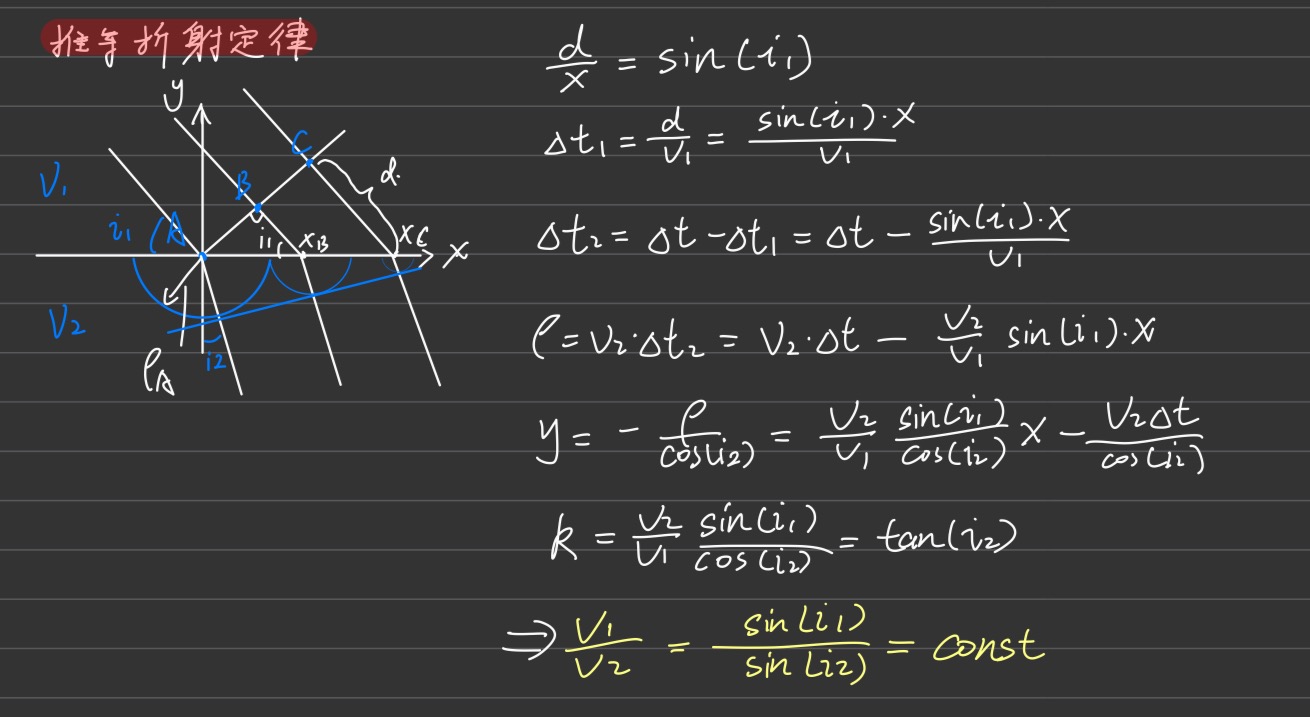 推导折射定律
y
C
d.
V₁
B
i₁
A
i₁
x_B
x_C
x
V₂
i₂
ρ_A
d/x = sin(i₁)
Δt₁ = d/V₁ = sin(i₁)·x/V₁
Δt₂ = Δt - Δt₁ = Δt - sin(i₁)·x/V₁
ρ = V₂·Δt₂ = V₂·Δt - V₂/V₁ sin(i₁)·x
y = - ρ/cos(i₂) = V₂/V₁ sin(i₁)/cos(i₂) x - V₂Δt/cos(i₂)
k = V₂/V₁ sin(i₁)/cos(i₂) = tan(i₂)
⇒ V₁/V₂ = sin(i₁)/sin(i₂) = const